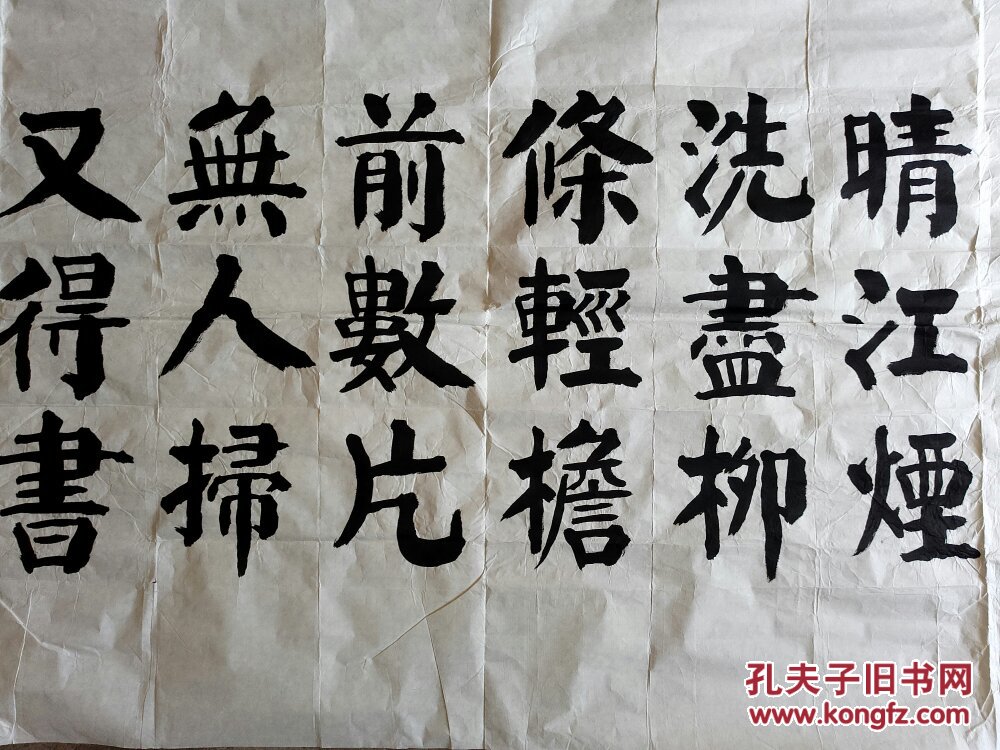 晴江煙
洗盡柳
條輕檐
前數片
無人掃
又得書
孔夫子旧书网
www.kongfz.com